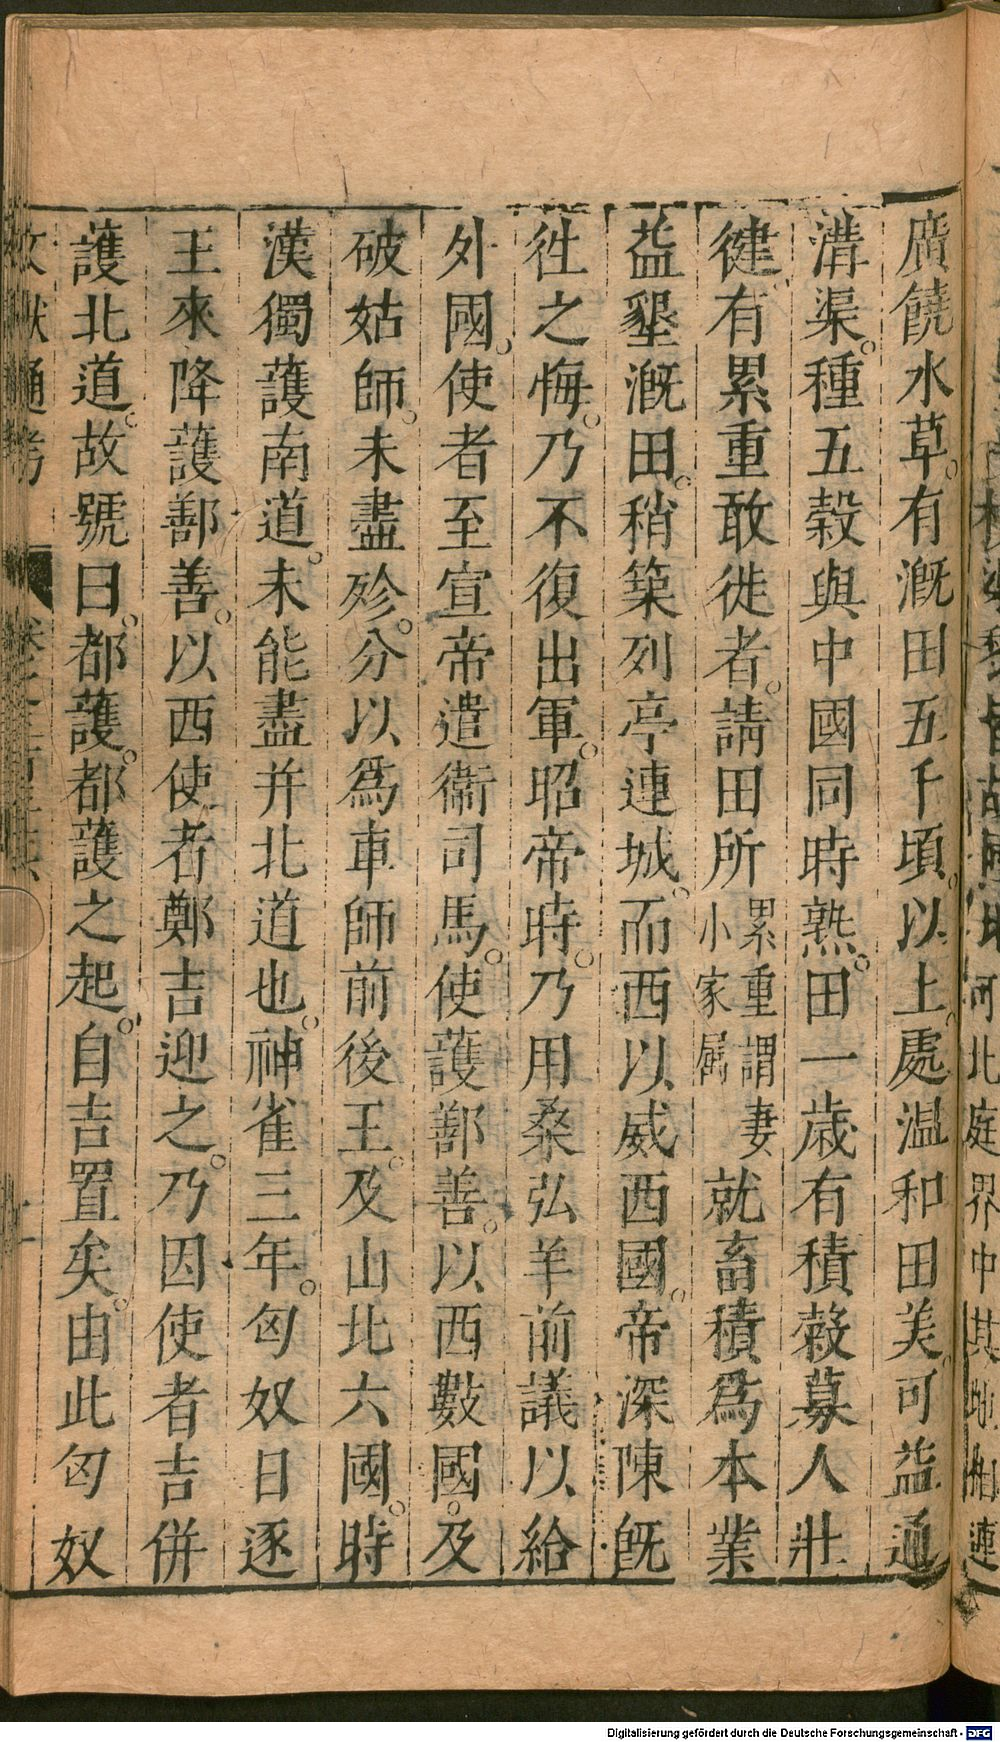 廣饒水草。有漑田五千頃。以上。處温和田美。可益通
溝渠。種五穀與中國同時熟。田一歳有積穀募人壯
徤有累重敢徙者。請田所累重謂妻小家属就畜積爲本業
益墾漑田。稍築列亭連城。而西以威西國。帝深陳旣
徃之悔。乃不復出軍。昭帝時。乃用桑弘羊前議以給
外國。使者至宣帝遣衞司馬。使護鄯善。以西數國。及
破姑師。未盡殄。分以爲車師前後王。及山北六國。時
漢獨護南道。未能盡并北道也。神雀三年。匈奴日逐
王來降護鄯善。以西使者鄭吉迎之。乃因使者吉併
護北道。故號曰。都護。都護之起。自吉置矣。由此匈奴
文獻通考
Digitalisierung gefördert durch die Deutsche Forschungsgemeinschaft - DFG